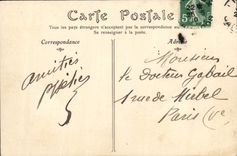 Carte Postale
Tous les pays étrangers n'acceptent pas la correspondance au
Se renseigner à la poste.
Correspondance
Adresse
amitiés
Monsieur
le Docteur Gabail
1 rue de Mirbel
Paris (Ve)